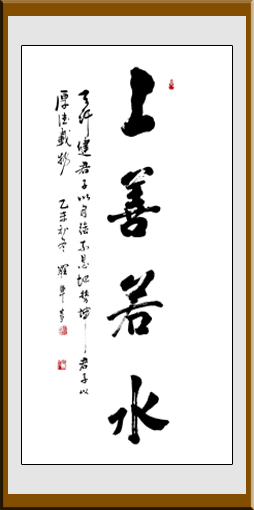 上善若水
天行健君子以自强不息地势坤君子以
厚德载物
乙未初冬